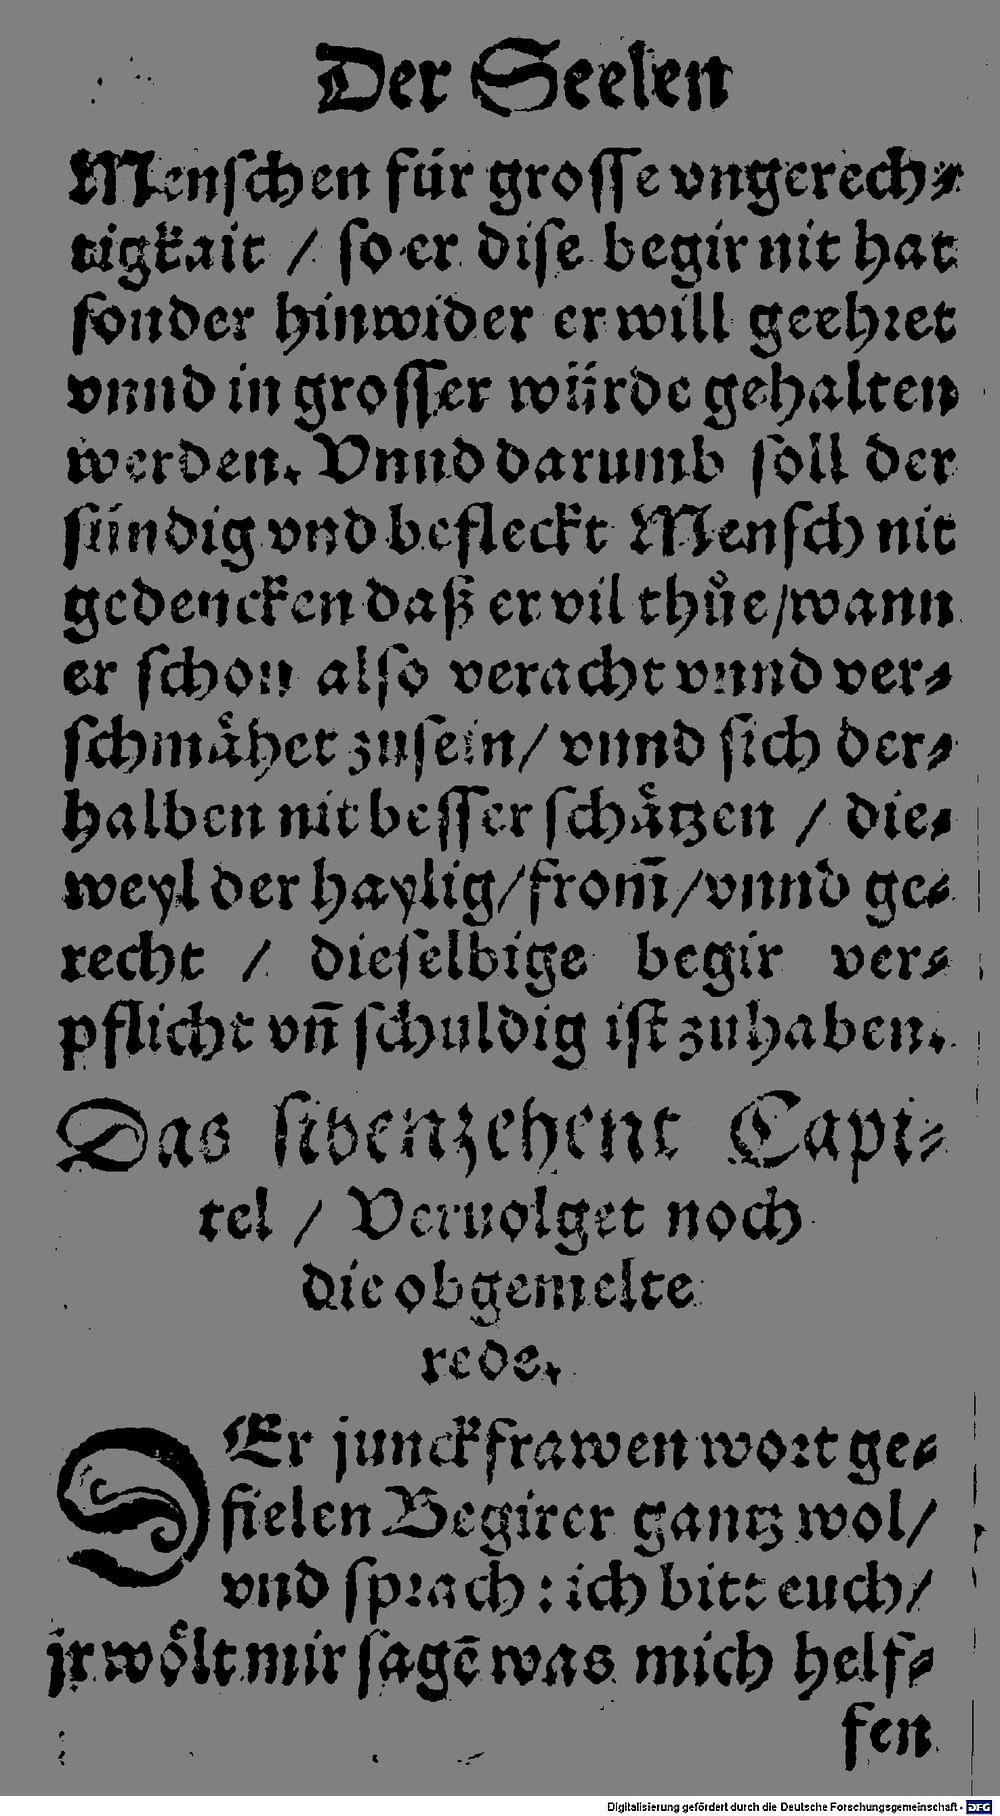 Der Seelen
Menschen für grosse vngerech⸗
tigkait / so er dise begir nit hat
sonder hinwider er will geehret
vnnd in grosser würde gehalten
werden. Vnnd darumb soll der
sündig vnd befleckt Mensch nit
gedencken daß er vil thuͦe/wann
er schon also veracht vnnd ver⸗
schmaͤhet zusein/ vnnd sich der⸗
halben nit besser schaͤtzen / die⸗
weyl der haylig/from̄/vnnd ge⸗
recht / dieselbige begir ver⸗
pflicht vn̄ schuldig ist zuhaben.
Das sibenzehent Capi⸗
tel / Veruolget noch
die obgemelte
rede.
DEr junckfrawen wort ge⸗
fielen Begirer gantz wol/
vnd sprach : ich bitt euch/
jr woͤlt mir sagē was mich helf⸗
fen
Digitalisierung gefördert durch die Deutsche Forschungsgemeinschaft - DFG